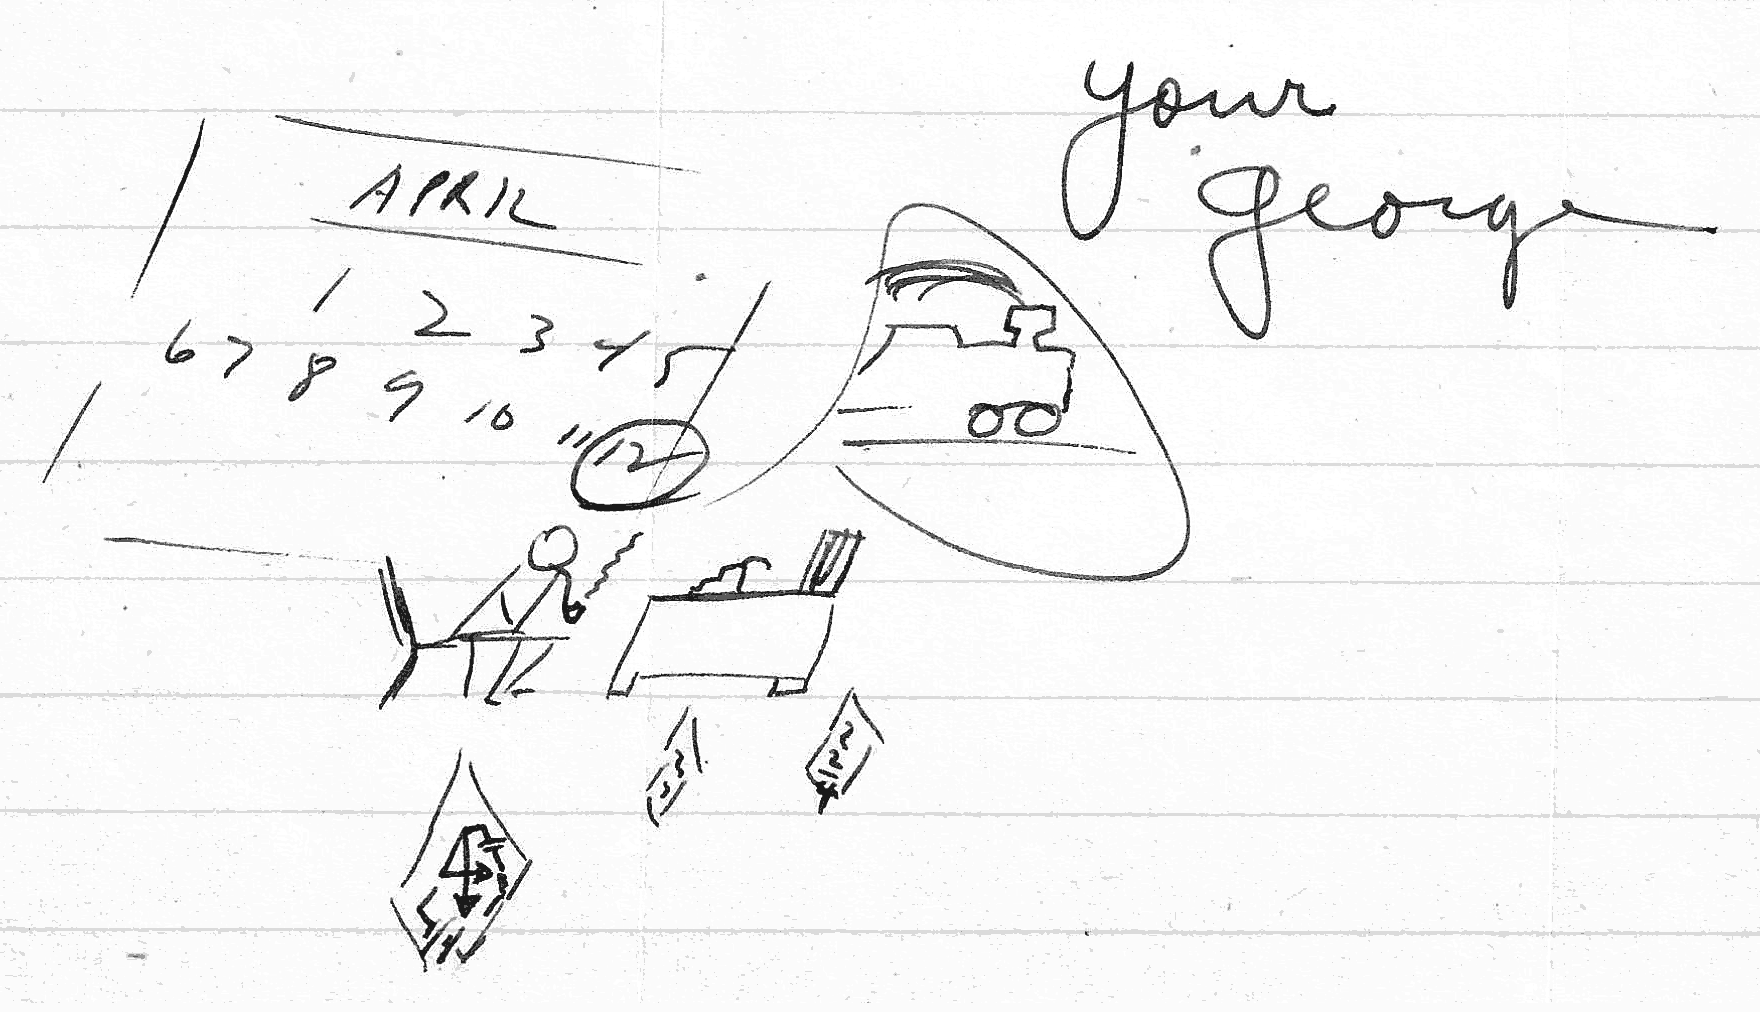 your
george
APRIL
1 2 3 4 5
6 7 8 9 10 11 12